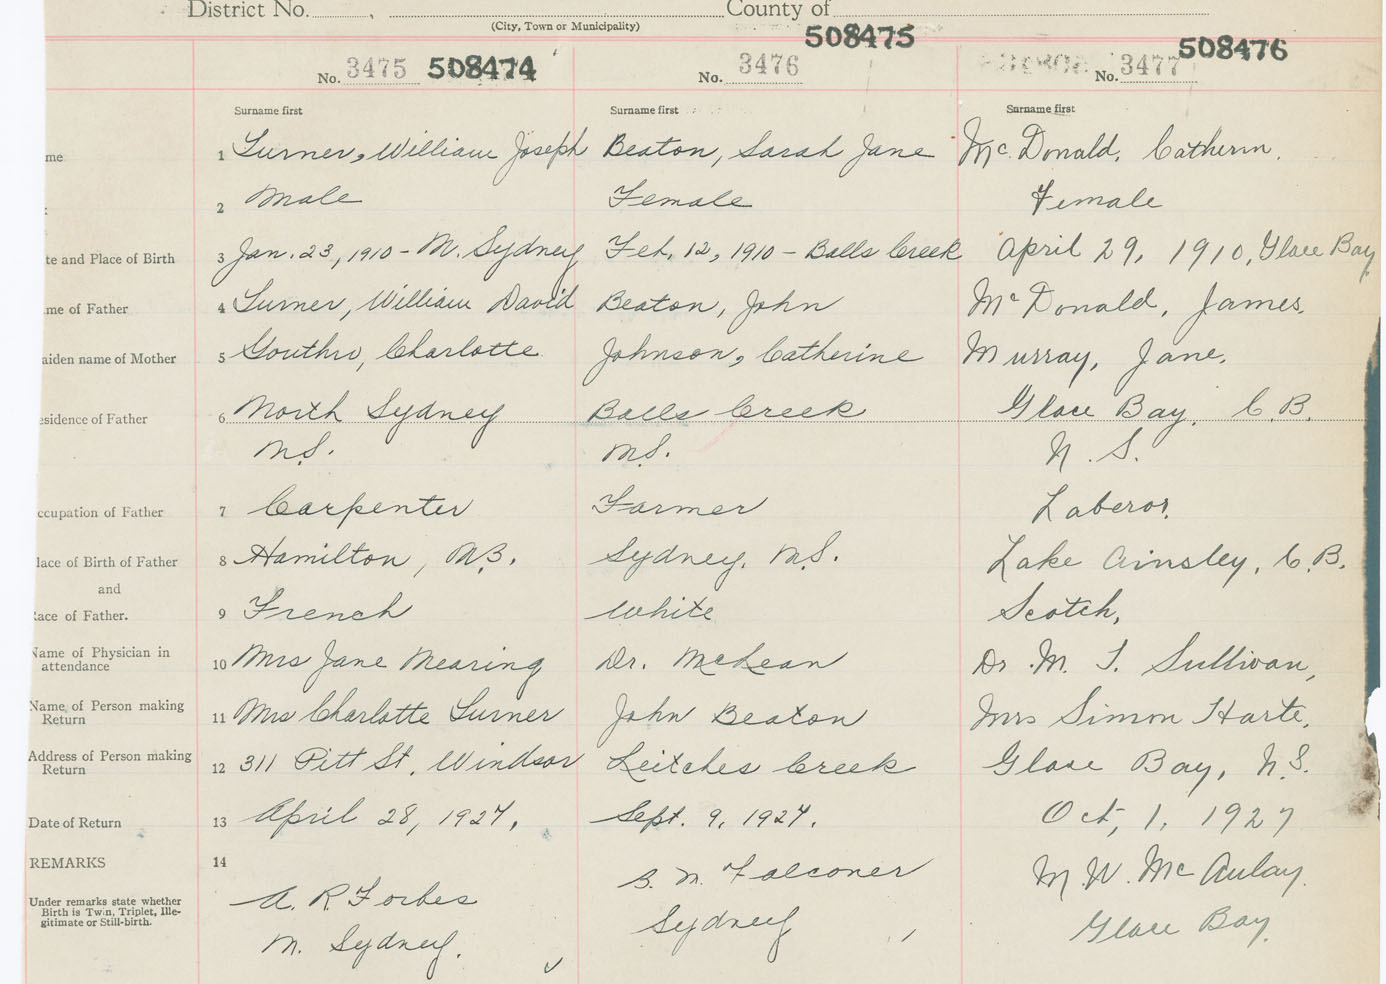 District No. , County of
(City, Town or Municipality)
No. 3475 508474 No. 3476 508475 No. 3477 508476
Surname first Surname first Surname first
me 1 Turner, William Joseph Beaton, Sarah Jane McDonald, Catherin.
2 Male Female Female
te and Place of Birth 3 Jan. 23, 1910 - N. Sydney Feb. 12, 1910 - Balls Creek April 29, 1910, Glace Bay
me of Father 4 Turner, William David Beaton, John McDonald, James.
aiden name of Mother 5 Gouthro, Charlotte Johnson, Catherine Murray, Jane.
esidence of Father 6 North Sydney Balls Creek Glace Bay, C.B.
N.S. N.S. N.S.
ccupation of Father 7 Carpenter Farmer Laberor.
lace of Birth of Father 8 Hamilton, N.B. Sydney. N.S. Lake Ainsley, C.B.
and
Race of Father. 9 French White Scotch,
Name of Physician in
attendance 10 Mrs Jane Nearing Dr. McLean Dr. M. T. Sullivan,
Name of Person making
Return 11 Mrs Charlotte Turner John Beaton Mrs Simon Harte.
Address of Person making
Return 12 311 Pitt St. Windsor Leitches Creek Glace Bay, N.S.
Date of Return 13 April 28, 1927. Sept. 9, 1927. Oct, 1, 1927
REMARKS 14
Under remarks state whether
Birth is Twin, Triplet, Ille-
gitimate or Still-birth.
A. R. Forbes B. N. Falconer M. W. McAulay.
N. Sydney. Sydney Glace Bay.